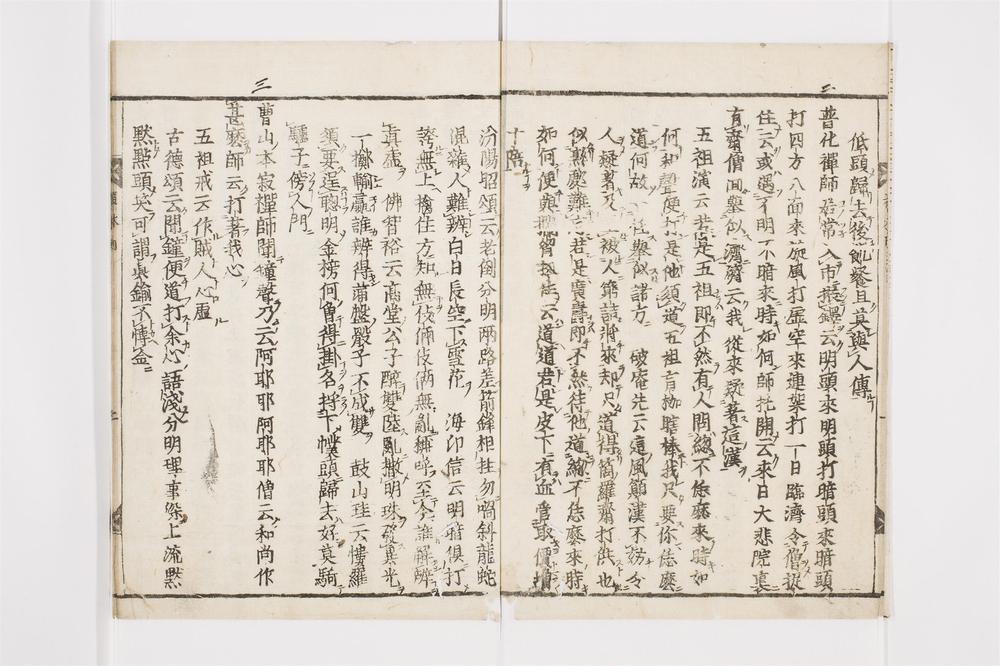 二
低頭歸去後飢餐且莫與人傳
普化禪師居常入市振鐸云明頭來明頭打暗頭來暗頭
打四方八面來旋風打虛空來連架打一日臨濟令僧捉
住云或遇不明不暗來時如何師托開云來日大悲院裏
有齋僧回擧似濟濟云我從來疑著這漢
五祖演云若是五祖即不然有人問總不恁麼來時如
何和聲便打是他須道五祖盲枷瞎棒我只要你恁麼
道何故 往擧似諸方 破庵先云這風顛漢不務令
人疑著及 被人窮詰將來却只道得箇羅齋打供也
似難 若是廣壽即不然待他道總不恁麼來時
如何便與 云道道君是皮下有血管取價
十陪
汾陽昭頌云老倒分明兩路差箭鋒相拄勿喎斜龍蛇
混雜人難辨白日長空下雪花 海印信云明暗俱打
誇無上擒住方知無伎倆伎倆無亂稱呼至今誰解辨
眞虛 佛智裕云高堂公子醉雙陸亂撒明珠發異光
一擲輸贏誰辨得滿盤骰子不成雙 鼓山珪云僂羅
須要逞聰明金榜何曾得掛名捋下幞頭歸去好莫騎
驢子傍人門
三
曹山本寂禪師聞鐘聲乃云阿耶耶阿耶耶僧云和尚作
甚麼師云打著我心
五祖戒云作賊人心虛
古德頌云聞鐘便道打余心語淺分明理事深上流默
默點頭笑可謂眞鍮不博金